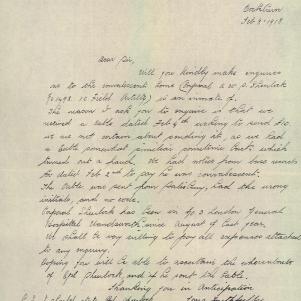 Feb 9. 1918
Dear Sir,
Will you kindly make enquiries
as to the convalescent home (Corporal
Field Artillery) is an inmate of.
The reason I ask you to enquire is that we
received a cable dated Feb 6th asking to send
we are not certain about sending it, as we had
a cable somewhat similar sometime back, which
turned out a fraud. We had letter from
dated Feb 2nd to say he was convalescent.
The cable was sent from had the wrong
initials, and no code.
Corporal has been in No 3 London General
Hospital Wandsworth since August of last year.
We shall be very willing to pay all expenses attached
to any inquiry.
Hoping you will be able to ascertain the whereabouts
of Cpl and if he sent the cable.
Thanking you in Anticipation
Yours faithfully